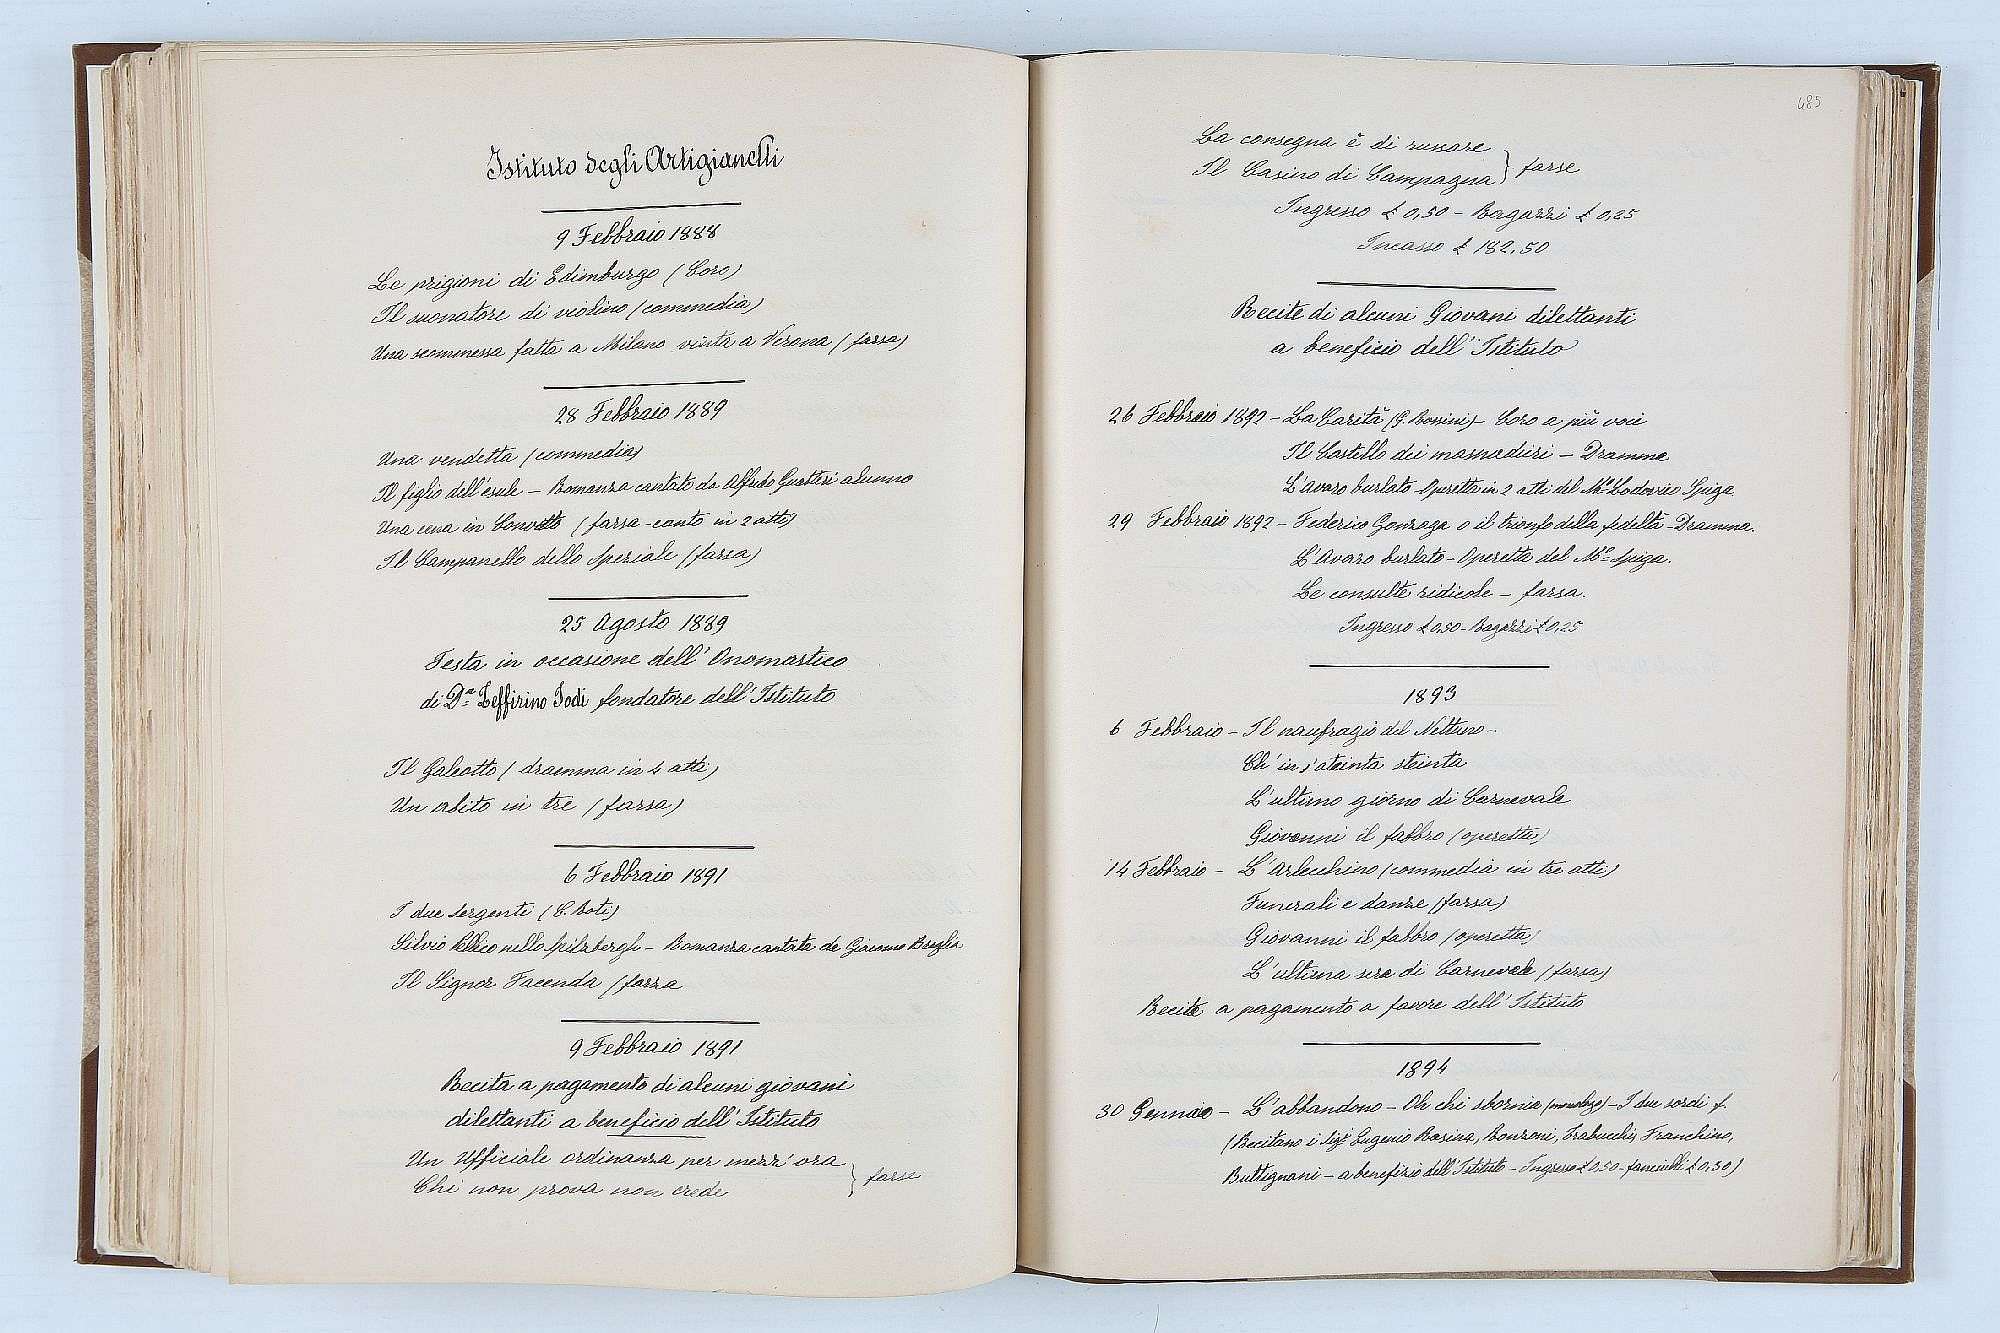 Istituto degli Artigianelli
9 Febbraio 1888
Le prigioni di Edimburgo (Coro)
Il suonatore di violino (commedia)
Una scommessa fatta a Milano vinta a Verona (farsa)
28 Febbraio 1889
Una vendetta (commedia)
Il figlio dell'esule – Romanza cantata da Alfredo alunno
Una cena in Convitto (farsa-canto in 2 atti)
Il Campanello dello Speziale (farsa)
25 Agosto 1889
Festa in occasione dell'Onomastico
di Dn. Zeffirino Jodi fondatore dell'Istituto
Il Galeotto (dramma in 4 atti)
Un abito in tre (farsa)
6 Febbraio 1891
I due sergenti (C. Roti)
Silvio Pellico nello Spilzbergh – Romanza cantata da Giacomo Braglia
Il Signor Facenda (farsa
9 Febbraio 1891
Recita a pagamento di alcuni giovani
dilettanti a beneficio dell'Istituto
Un Ufficiale ordinanza per mezz'ora
Chi non prova non crede
farse
485
La consegna è di russare
Il Casino di Campagna
farse
Ingresso £ 0,50 – Ragazzi £ 0,25
Incasso £ 182.50
Recite di alcuni Giovani dilettanti
a beneficio dell'Istituto
26 Febbraio 1892 – La Carità (G. Rossini) – Coro a più voci
Il Castello dei masnadieri – Dramma
L'Avaro burlato – Operetta in 2 atti del Mo. Lodovico Spiga
29 Febbraio 1892 – Federico Gonzaga o il trionfo della fedeltà – Dramma.
L'Avaro burlato – Operetta del Mo. Spiga.
Le consulte ridicole – farsa.
Ingresso £ 0,50 – Ragazzi £ 0,25
1893
6 Febbraio – Il naufragio del Nettuno –
Ch'in s'ateinta steinta
L'ultimo giorno di Carnevale
Giovanni il fabbro (operetta)
14 Febbraio – L'Arlecchino (commedia in tre atti)
Funerali e danze (farsa)
Giovanni il fabbro (operetta)
L'ultima sera di Carnevale (farsa)
Recite a pagamento a favore dell'Istituto
1894
30 Gennaio – L'abbandono – Oh chi sbornia (monologo) – I due sordi f.
(Recitano i Sigi. Eugenio Rosina, Bonzoni, Trabucchi, Franchino,
Buttignani – a benefizio dell'Istituto – Ingresso £ 0,50 – fanciulli £ 0,30)